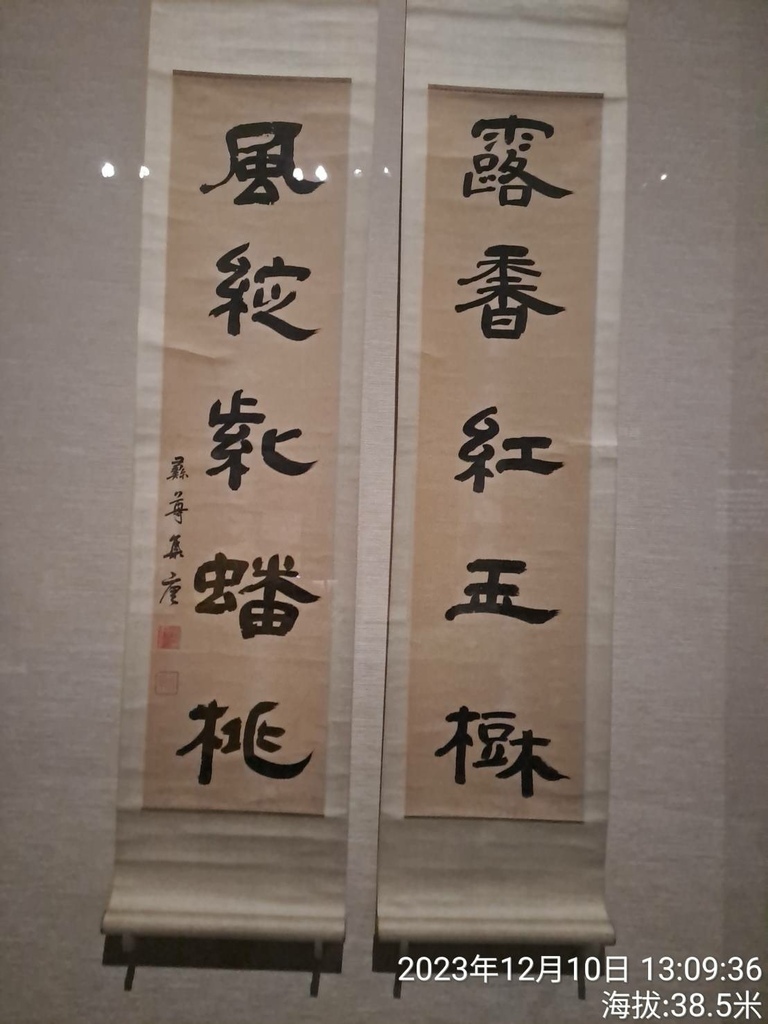 露香紅玉樹
風綻紫蟠桃
2023年12月10日 13:09:36
海拔:38.5米